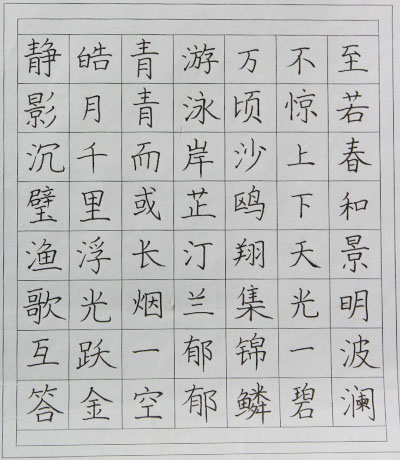 至若春和景明波澜
不惊上下天光一碧
万顷沙鸥翔集锦鳞
游泳岸芷汀兰郁郁
青青而或长烟一空
皓月千里浮光跃金
静影沉璧渔歌互答